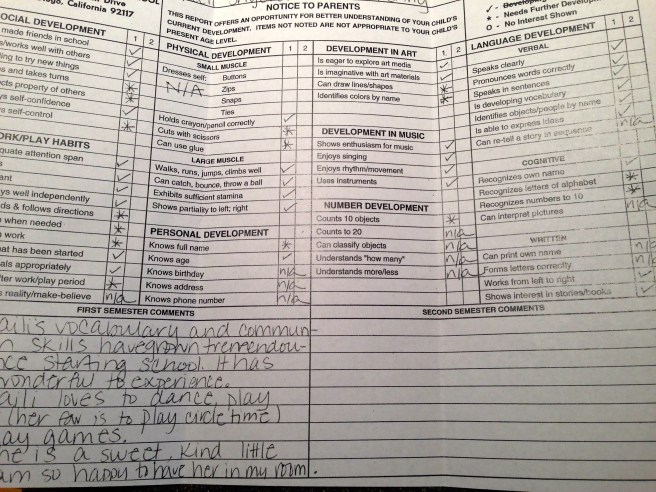 Drive
, California 92117
NOTICE TO PARENTS
THIS REPORT OFFERS AN OPPORTUNITY FOR BETTER UNDERSTANDING OF YOUR CHILD'S
CURRENT DEVELOPMENT. ITEMS NOT NOTED ARE NOT APPROPRIATE TO YOUR CHILD'S
PRESENT AGE LEVEL.
✓ - Developing
* - Needs Further Develop
O - No Interest Shown
OCIAL DEVELOPMENT 1 2
made friends in school ✓
s/works well with others ✓
ng to try new things ✓
s and takes turns ✓
cts property of others *
ys self-confidence ✓
s self-control *
ORK/PLAY HABITS
quate attention span ✓
ant ✓
ys well independently ✓
ds & follows directions *
when needed *
work *
hat has been started ✓
als appropriately ✓
ter work/play period *
s reality/make-believe n/a
PHYSICAL DEVELOPMENT 1 2
SMALL MUSCLE
Dresses self: Buttons
N/A Zips
Snaps
Ties
Holds crayon/pencil correctly ✓
Cuts with scissors *
Can use glue *
LARGE MUSCLE
Walks, runs, jumps, climbs well ✓
Can catch, bounce, throw a ball ✓
Exhibits sufficient stamina ✓
Shows partiality to left; right ✓
PERSONAL DEVELOPMENT
Knows full name *
Knows age ✓
Knows birthday n/a
Knows address n/a
Knows phone number n/a
DEVELOPMENT IN ART 1 2
Is eager to explore art media ✓
Is imaginative with art materials ✓
Can draw lines/shapes *
Identifies colors by name *
DEVELOPMENT IN MUSIC
Shows enthusiasm for music ✓
Enjoys singing ✓
Enjoys rhythm/movement ✓
Uses instruments ✓
NUMBER DEVELOPMENT
Counts 10 objects *
Counts to 20 n/a
Can classify objects n/a
Understands "how many" n/a
Understands more/less n/a
LANGUAGE DEVELOPMENT
VERBAL
Speaks clearly
Pronounces words correctly
Speaks in sentences
Is developing vocabulary
Identifies objects/people by name
Is able to express ideas
Can re-tell a story in sequence n/a
COGNITIVE
Recognizes own name
Recognizes letters of alphabet
Recognizes numbers to 10
Can interpret pictures n/a
WRITTEN
Can print own name
Forms letters correctly
Works from left to right
Shows interest in stories/books
FIRST SEMESTER COMMENTS
aili's vocabulary and commun-
n skills have grown tremendou-
nce starting school. It has
wonderful to experience.
aili loves to dance, play
(her fav is to play circle time)
ay games.
he is a sweet, kind little
am so happy to have her in my room!.
SECOND SEMESTER COMMENTS